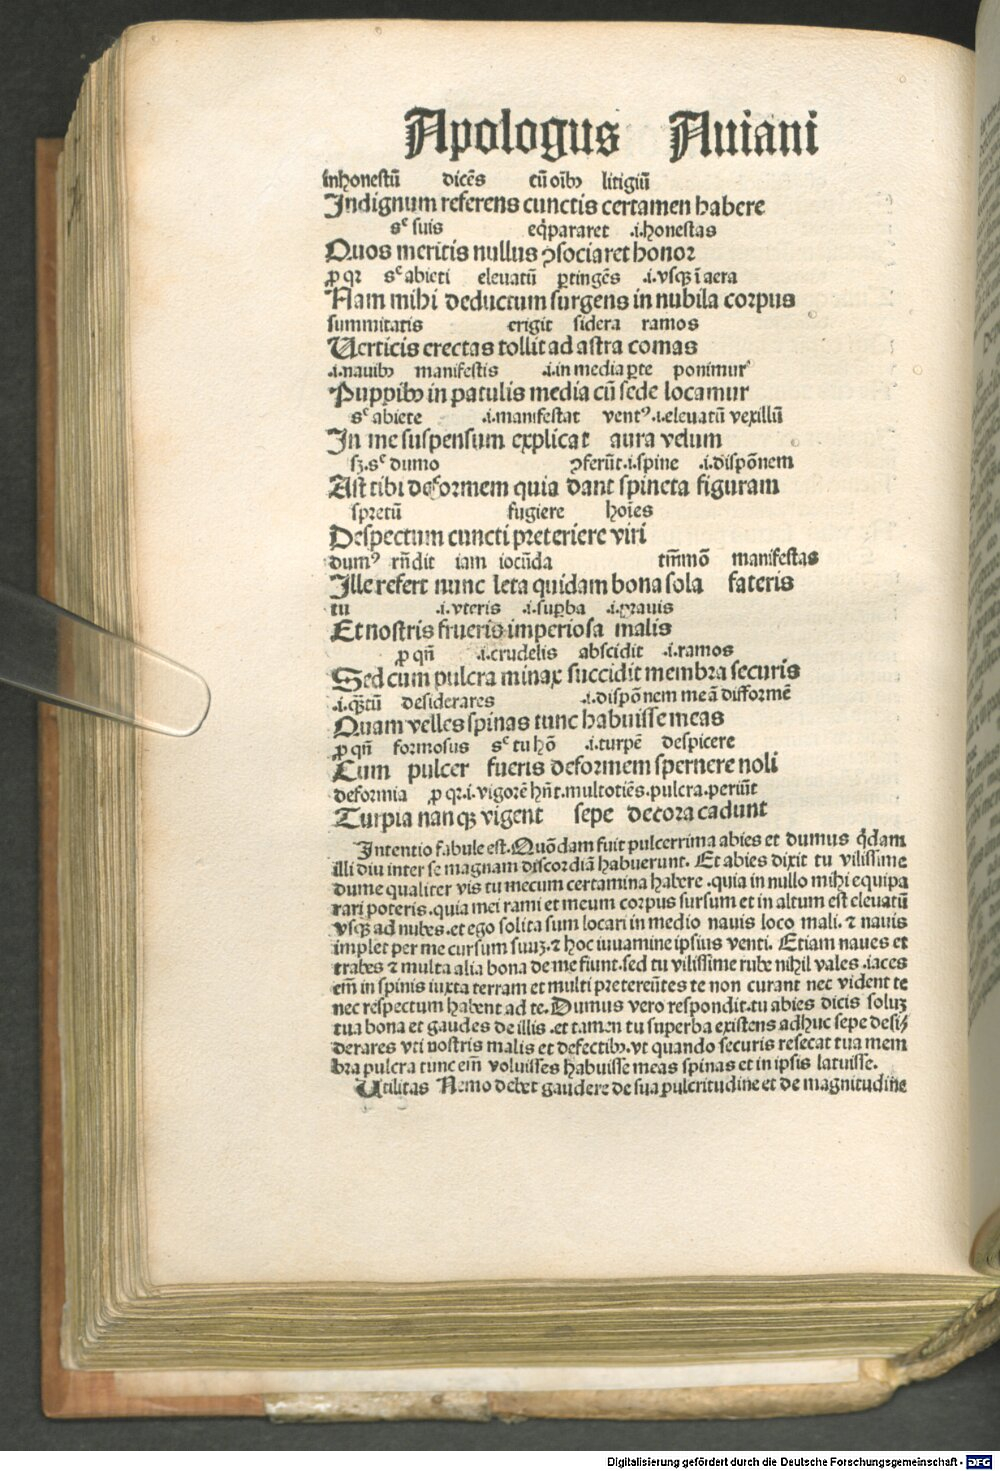 Apologus Auiani
inhonestū dicēs cū oībꝯ litigiū
Indignum referens cunctis certamen habere
sᶜ suis eq̄pararet .i.honestas
Quos meritis nullus ꝯsociaret honor
ꝓ qꝛ sᶜ abieti eleuatū ꝑtingēs .i.vsqꝫ ī aera
Nam mihi deductum surgens in nubila corpus
summitatis erigit sidera ramos
Uerticis erectas tollit ad astra comas
.i.nauibꝯ manifestis .i.in media ꝑte ponimur
Puppibꝯ in patulis media cū sede locamur
sᶜ abiete .i.manifestat ventꝰ .i.eleuatū vexillū
In me suspensum explicat aura velum
sꝫ.sᶜ dumo ꝯferūt.i.spine .i.dispōnem
Ast tibi deformem quia dant spineta figuram
spretū fugiere hoīes
Despectum cuncti preteriere viri
dumꝰ rn̄dit iam iocūda tm̄mō manifestas
Ille refert nunc leta quidam bona sola fateris
tu .i.vteris .i.suꝑba .i.prauis
Et nostris frueris imperiosa malis
ꝓ qn̄ .i.crudelis abscidit .i.ramos
Sed cum pulcra minax succidit membra securis
.i.qꝫtū desiderares .i.dispōnem meā difformē
Quam velles spinas tunc habuisse meas
ꝓ qn̄ formosus sᶜ tu hō .i.turpē despicere
Cum pulcer fueris deformem spernere noli
deformia ꝓ qꝛ.i.vigorē hn̄t.multotiēs.pulcra.periūt
Turpia nanqꝫ vigent sepe decora cadunt
Intentio fabule est.Quōdam fuit pulcerrima abies et dumus q̄dam
illi diu inter se magnam discordiā habuerunt. Et abies dixit tu vilissime
dume qualiter vis tu mecum certamina habere .quia in nullo mihi equipa
rari poteris.quia mei rami et meum corpus sursum et in altum est eleuatū
vsqꝫ ad nubes.et ego solita sum locari in medio nauis loco mali. ⁊ nauis
implet per me cursum suuꝫ.⁊ hoc iuuamine ipsius venti. Etiam naues et
trabes ⁊ multa alia bona de me fiunt.sed tu vilissime rube nihil vales .iaces
em̄ in spinis iuxta terram et multi pretereūtes te non curant nec vident te
nec respectum habent ad te.Dumus vero respondit.tu abies dicis soluꝫ
tua bona et gaudes de illis .et tamen tu superba existens adhuc sepe desi⸗
derares vti nostris malis et defectibꝯ.vt quando securis resecat tua mem
bra pulcra tunc em̄ voluisses habuisse meas spinas et in ipsis latuisse.
Utilitas Nemo debet gaudere de sua pulcritudine et de magnitudine
Digitalisierung gefördert durch die Deutsche Forschungsgemeinschaft - DFG